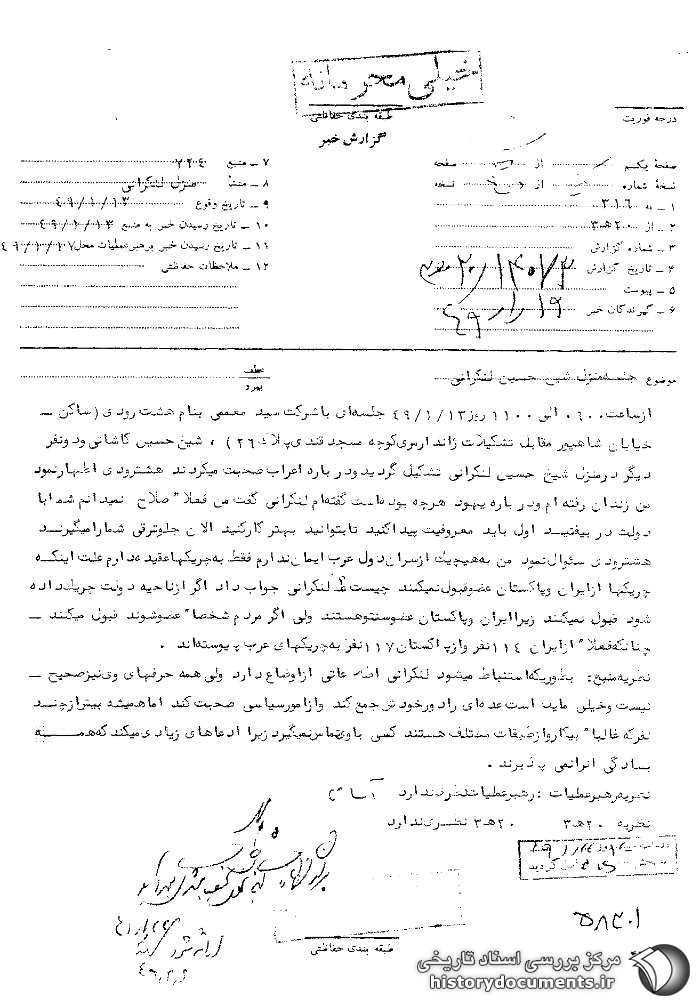 خیلی محرمانه
طبقه بندی حفاظتی
گزارش خبر
درجه فوریت
صفحه یکم از صفحه
نسخهٔ شماره از نسخه
۱ ـ به ۳۱۶
۲ ـ از ۲۰هـ۳
۳ ـ شماره گزارش
۴ ـ تاریخ گزارش
۵ ـ پیوست
۶ ـ گیرندگان خبر
۷ ـ منبع ۷۲۰۴
۸ ـ منشأ منزل لنکرانی
۹ ـ تاریخ وقوع ۴۹/۱/۱۳
۱۰ ـ تاریخ رسیدن خبر به منبع ۴۹/۱/۱۳
۱۱ ـ تاریخ رسیدن خبر برهبرعملیات محل ۴۹/۱/۱۷
۱۲ ـ ملاحظات حفاظتی
موضوع جلسه منزل شیخ حسین لنکرانی
عطف
پیرو
ازساعت ۰۹۰۰ الی ۱۱۰۰ روز ۴۹/۱/۱۳ جلسه‌ای باشرکت سید معممی بنام هشت رودی (ساکن ـ
خیابان شاهپور مقابل تشکیلات ژاندارمری کوچه مسجد قندی پلاک ۲۶) ، شیخ حسین کاشانی ودونفر
دیگر درمنزل شیخ حسین لنکرانی تشکیل گردید ودرباره اعراب صحبت میکردند هشترودی اظهارنمود
من زندان رفته ام ودرباره یهود هرچه بوده است گفته‌ام لنکرانی گفت من فعلا" صلاح نمیدانم شمابا
دولت در بیفتید اول باید معروفیت پیدا کنید تابتوانید بهتر کارکنید الان جلوترقی شمارامیگیرند
هشترودی سئوال نمود من به هیچیک ازسران دول عرب ایمان ندارم فقط به چریکها عقیده دارم علت اینکه
چریکها ازایران وپاکستان عضوقبول نمیکنند چیست لنکرانی جواب داد اگر ازناحیه دولت چریک داده
شود قبول نمیکنند زیراایران وپاکستان عضوسنتوهستند ولی اگر مردم شخصا" عضوشوند قبول میکنند ـ
چنانکه فعلا" ازایران ۱۱۴ نفر وازپاکستان ۱۱۷ نفر به چریکهای عرب پیوسته‌اند .
نظریه منبع: بطوریکه استنباط میشود لنکرانی اطلاعاتی ازاوضاع دارد ولی همه حرفهای وی نیز صحیح ـ
نیست وخیلی مایل است عده‌ای رادورخودش جمع کند وازامورسیاسی صحبت کند اما همیشه بیش از چند
نفرکه غالبا" بیکاروازطبقات مختلف هستند کسی باوی تماس نمیگیرد زیرا ادعاهای زیادی میکند که همه
بسادگی آنرانمی پذیرند .
نظریه رهبرعملیات : رهبرعملیات نظری ندارد
نظریه ۲۰هـ۳ ۲۰هـ۳ نظری ندارد
۵۸۳۰۱
طبقه بندی حفاظتی
مرکز بررسی اسناد تاریخی
historydocuments.ir